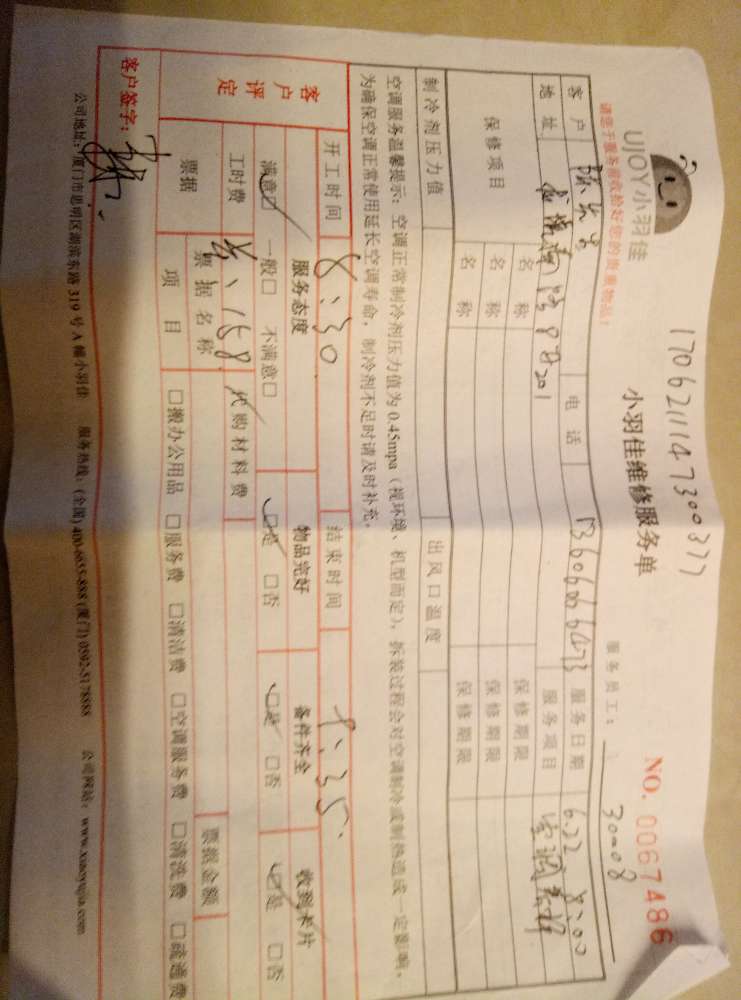 17062111147300377
UJOY小羽佳
小羽佳维修服务单
NO. 0067486
请您于服务前收捡好您的贵重物品!
服务员工: 30008
客户 电话 13606066473 服务日期 6.22 8:00
地址 路8号201 服务项目 空调
保修项目 名称 保修期限
名称 保修期限
名称 保修期限
制冷剂压力值 出风口温度
空调服务温馨提示:空调正常制冷剂压力值为0.45mpa(视环境、机型而定),拆装过程会对空调制冷或制热造成一定影响,
为确保空调正常使用延长空调寿命,制冷剂不足时请及时补充。
开工时间 8:30 结束时间
客户评定 服务态度 物品完好 备件齐全 收到卡片
满意□ 一般□ 不满意□ □是 □否 □是 □否 □是 □否
工时费 168 代购材料费
票据 票据名称 票据金额
项目 □搬办公用品 □服务费 □清洁费 □空调服务费 □清洗费 □疏通费
客户签字:
公司地址:厦门市思明区湖滨东路319号A幢小羽佳 服务热线:(全国)400-6655-888 (厦门) 0592-5178888 公司网站:www.xiaoyujia.com